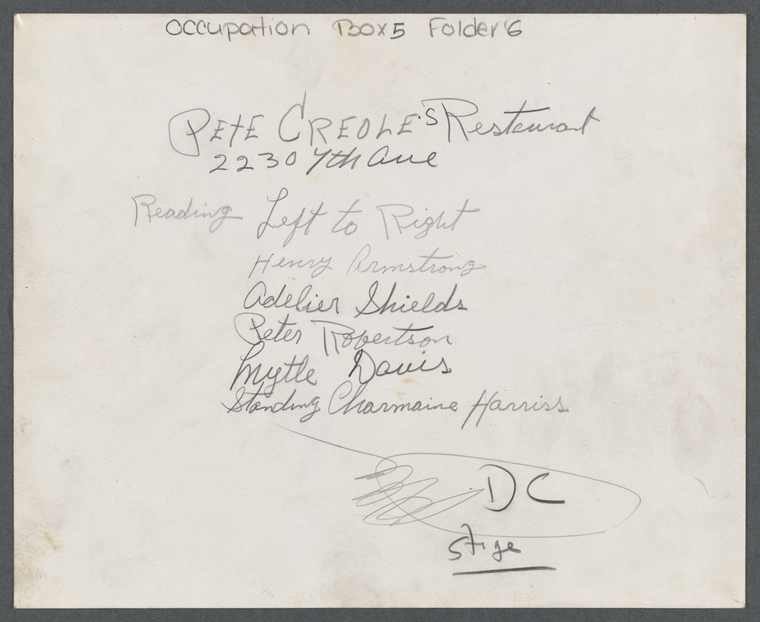 Occupation Box 5 Folder 6
PETE CREOLE'S Restaurant
2230 7th Ave
Reading Left to Right
Henry Armstrong
Adelier Shields
Peter Robertson
Mytle Davis
Standing Charmaine Harriss
DC